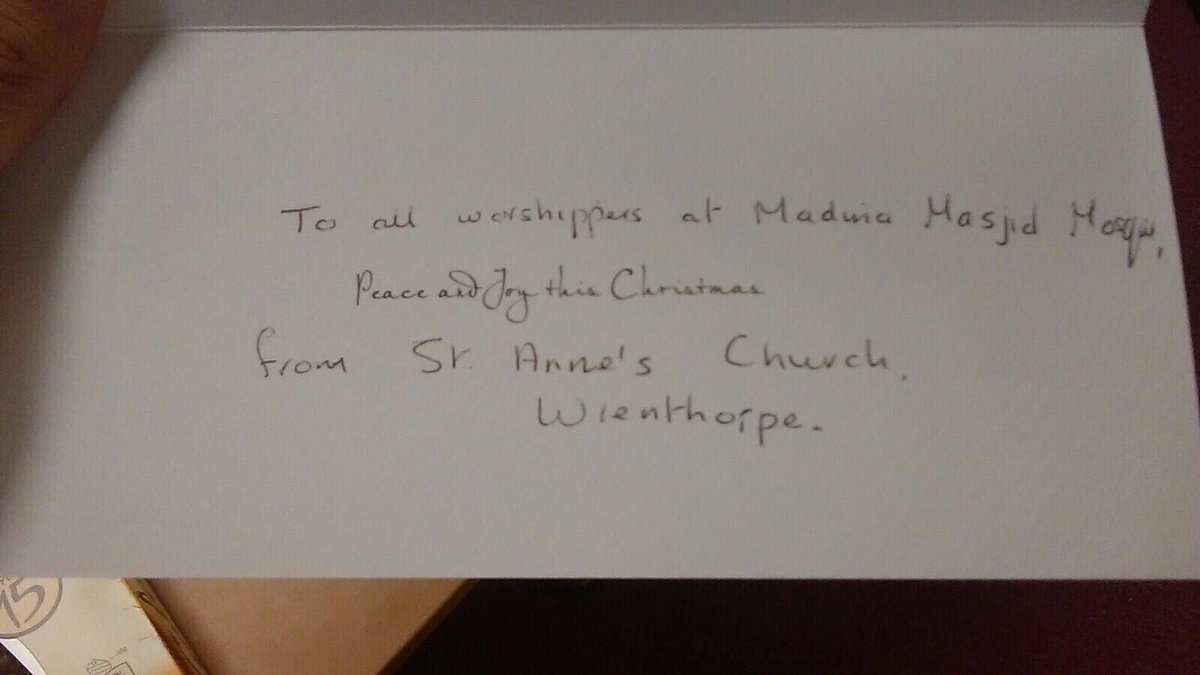 To all worshippers at Madina Masjid Mosque,
Peace and Joy this Christmas
from St. Anne's Church,
Wrenthorpe.
15